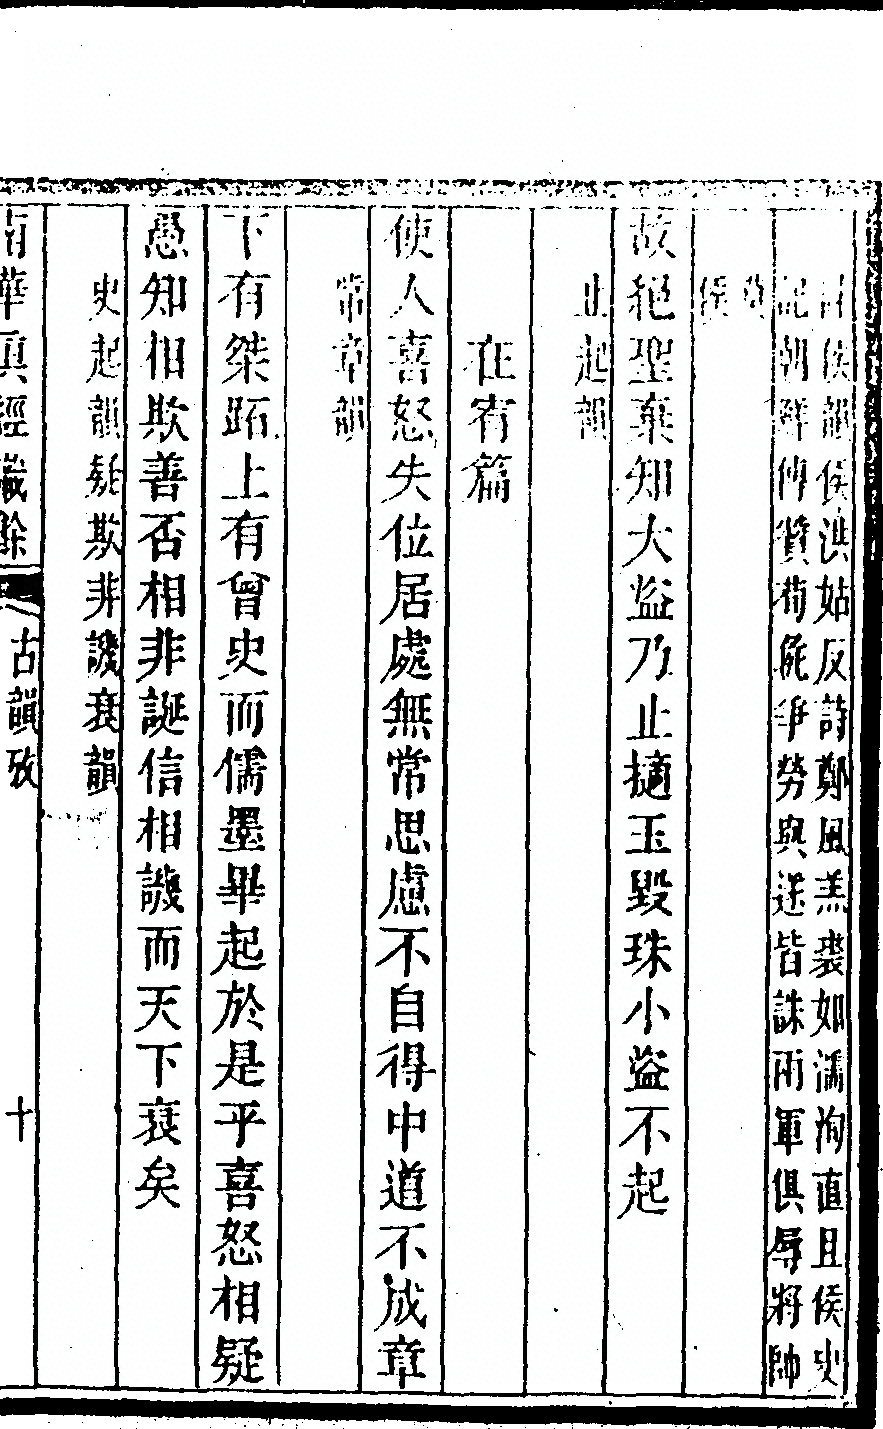 誅侯韻侯洪姑反詩鄭風羔裘如濡洵直且侯史
記朝鮮傳贊荀彘爭勞與遂皆誅兩軍俱辱將帥
莫
侯
故絕聖棄知大盜乃止擿玉毀珠小盜不起
止起韻
在宥篇
使人喜怒失位居處無常思慮不自得中道不成章
常章韻
下有桀跖上有曾史而儒墨畢起於是乎喜怒相疑
愚知相欺善否相非誕信相譏而天下衰矣
史起韻疑欺非譏衰韻
南華真經識餘 古韻攷 十